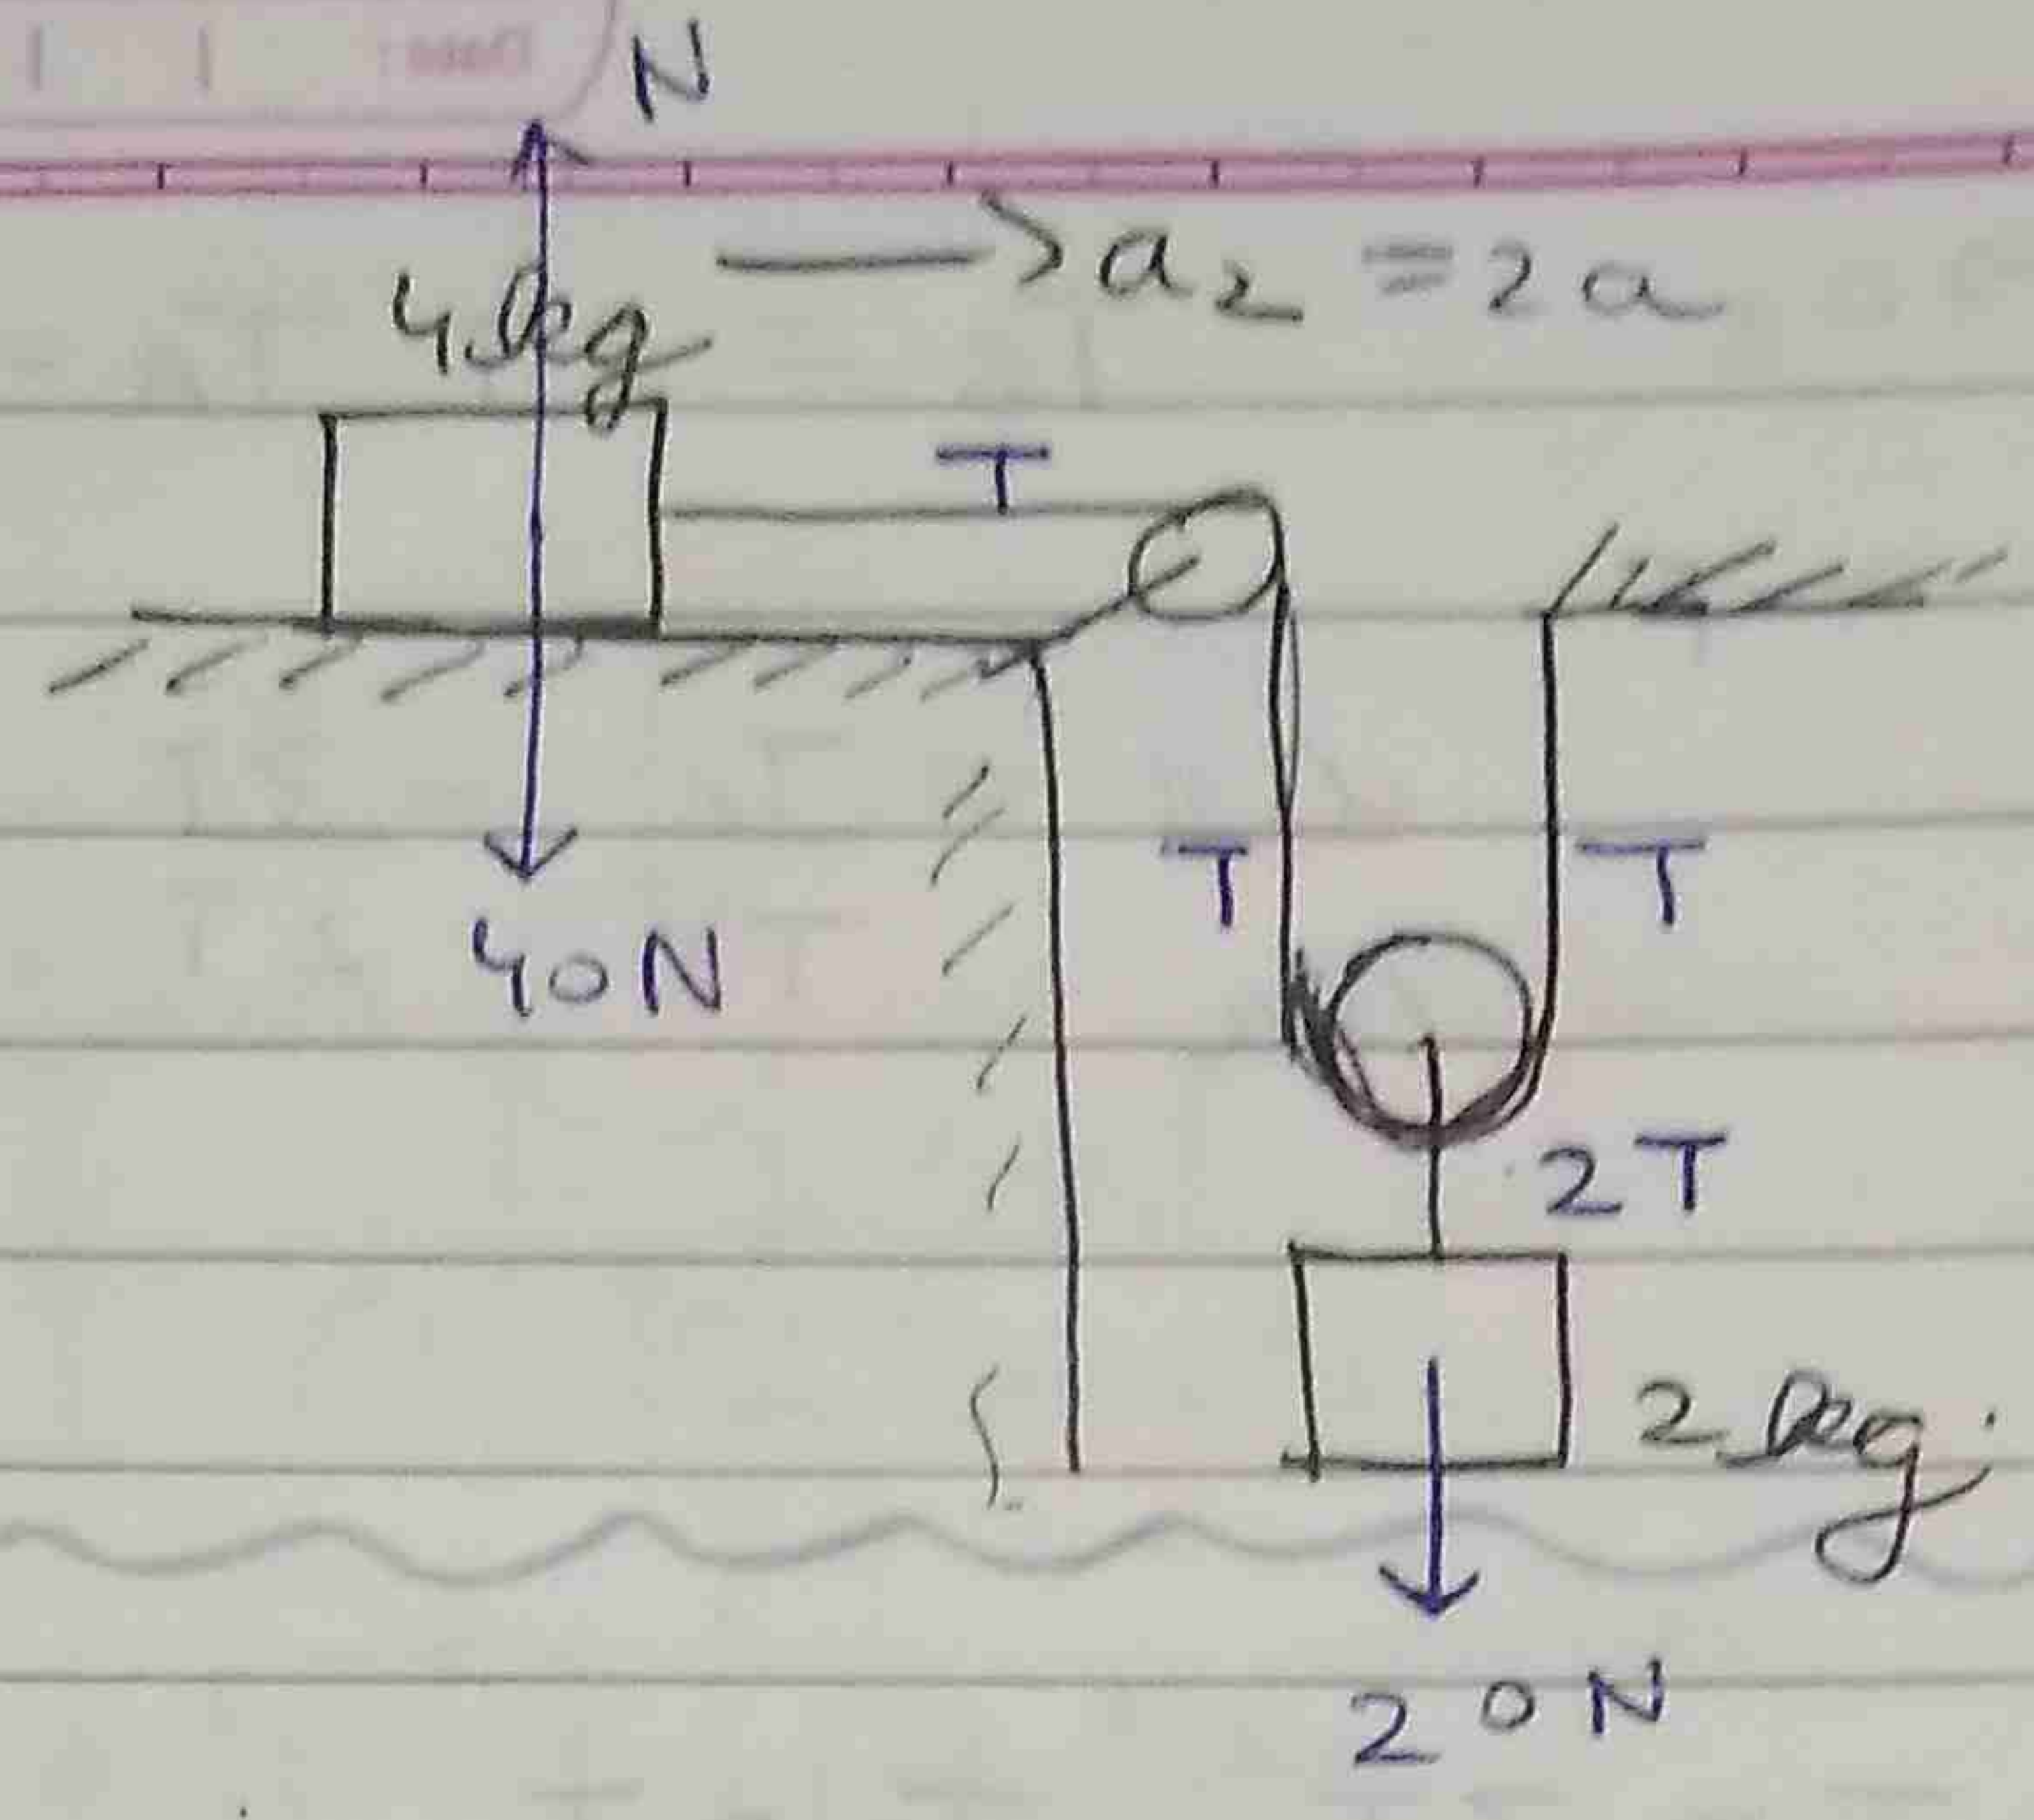 N
4kg → a₂ = 2a
T
T T
40N
2T
2kg
20N